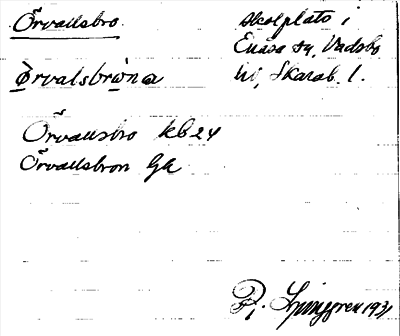 Örvallsbro.
skolplats i
Enåsa sn, Vadsbo
hd, Skarab. l.
Örvalsbrona
Örvallsbro kb 24
Örvallsbron Gk
R. Ljunggren 1931